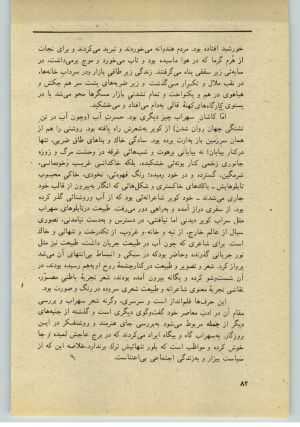 خورشید افتاده بود. مردم هندوانه می‌خوردند و تبرید می‌کردند و برای نجات
از هُرم گرما که در هوا ماسیده بود و تاب می‌خورد و موج برمی‌داشت، در
سایه‌ی زیر سقفی پناه می‌گرفتند. زندگی زیر طاقی بازار ودر سرداب خانه‌ها،
در نقب ملال و تکرار می‌گذشت و زیر ضربه‌های پشت سر هم چکش و
هیاهوی در هم و یکنواخت و تمام نشدنی بازار مسگرها محو می‌شد یا در
پستوی کارگاه‌های کهنه‌ی قالی به‌دام می‌افتاد و می‌خشکید.
اما کاشان سهراب چیز دیگری بود. حسرت آب (وچون آب در تن
تشنگی جهان روان شدن) از کویر به‌شعرش راه یافته بود. روشنی را هم از
همان سرزمین باز به‌ارث برده بود. سادگی خاک و بناهای طاق ضربی، تنها
در کنار بیابان! نه بیابانی برهوت و شب‌هائی غرقه در وحشت مرگ و زوزه
جانوری زخمی کنار بوته‌ئی خشکیده، بلکه خاکدانی غریب وخودمانی،
شرمگین، گسترده و در خود رمیده؛ رنگ قهوه‌ئی، نخودی، خاکی محبوب
تابلوهایش ــ بالک‌های خاکستری و شکل‌هائی که انگار به‌بیرون از قالب خود
جاری می‌شدند ــ خود کویر شاعرانه‌ئی بود که از آب روشنائی گذر کرده
بود، از سفری دراز آمده و به‌راهی دور می‌رفت. طبیعت درتابلوهای سهراب
مثل سراب کویر دیدنی اما نیافتنی، در دسترس و به‌دست نیامدنی، تصوری
سیال از عالم خارج، از تپه و خانه و غروب، از تکدرخت و تنهائی و خاک
است. برای شاعری که چون آب در طبیعت جریان داشت، طبیعت نیز مثل
نور جریانی گذرنده وحاضر بودکه در سبکی و انبساط بی‌انتهای آن می‌شد
پرواز کرد. شعر و تصویر و طبیعت در کنارچشمهٔ روح او به‌هم رسیده بودند، در
آن شستشو کرده و یگانه بیرون آمده بودند. شعر تجربه باطنی مصوّر،
نقاشی تجربهٔ معنوی شاعرانه و طبیعت شعری سروده در رنگ و صورت بود.
این حرف‌ها قلم‌انداز است و سرسری، وگرنه شعر سهراب و بررسی
مقام آن در ادب معاصر خود گفت‌وگوی دیگری است و گذشته از جنبه‌های
دیگر از جمله مربوط می‌شود به‌بررسی جای هنرمند و روشنفکر در این
روزگار. به‌سهراب گاه و بیگاه ایراد می‌کردند که در برج عاجش لمیده و جا
خوش کرده و مواظب است که بلور تنهائیش ترک برندارد. خلاصه این که از
سیاست بیزار و به‌زندگی اجتماعی بی‌اعتناست.
۸۲